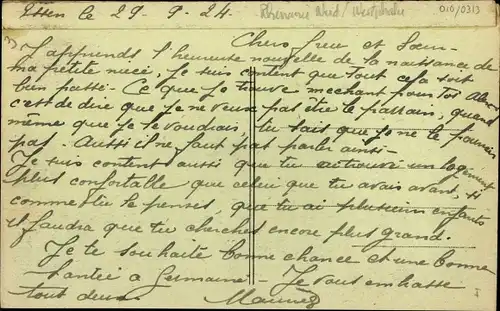 Essen le 29-9-24.
Rhénanie Nord/Westphalie
010/0313
3)
Chers frère et Soeur
J'apprends l'heureuse nouvelle de la naissance de
ma petite nièce, Je suis content que tout cela soit
bien passé - Ce que je trouve méchant pour toi
c'est de dire que je ne veux pas être le parrain, quand
même que je le voudrais, tu sais que je ne le pourrai
pas. Aussi il ne faut pas parler ainsi -
Je suis content aussi que tu as trouvé un logement
plus confortable que celui que tu avais avant, si
comme tu le penses, que tu ai plusieurs enfants
il faudra que tu cherches encore plus grand.
Je te souhaite bonne chance et une bonne
Santée a Germaine - Je vous embrasse
tout deux. Maurice